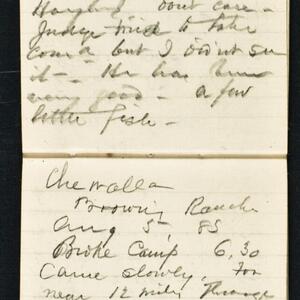 don't care -
Judge tried to take
but I didn't see
it - He has been
very good - a few
little fish -
Chewalla
Browning Ranche
Aug 5, 85
Broke Camp 6,30
Came slowly, for
near 12 miles through